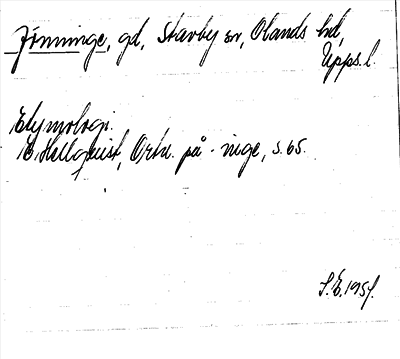 Jönninge, gd, Stavby sn, Olands hd,
Upps. l.
Etymologi.
E. Hellquist, Ortn. på -inge, s. 65.
S.E. 1951.